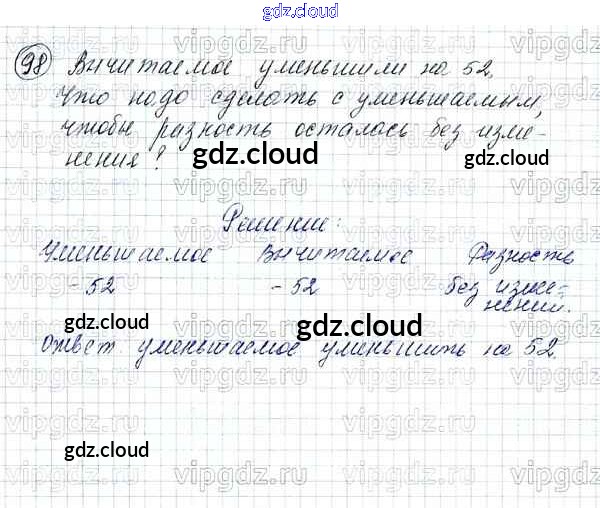 gdz.cloud
98 Вычитаемое уменьшили на 52.
Что надо сделать с уменьшаемым,
чтобы разность осталась без изме-
нения?
gdz.cloud gdz.cloud
Решение:
Уменьшаемое Вычитаемое Разность
- 52 - 52 без изме-
нений.
gdz.cloud
gdz.cloud
Ответ уменьшаемое уменьшить на 52.
gdz.cloud gdz.cloud
vipgdz.ru